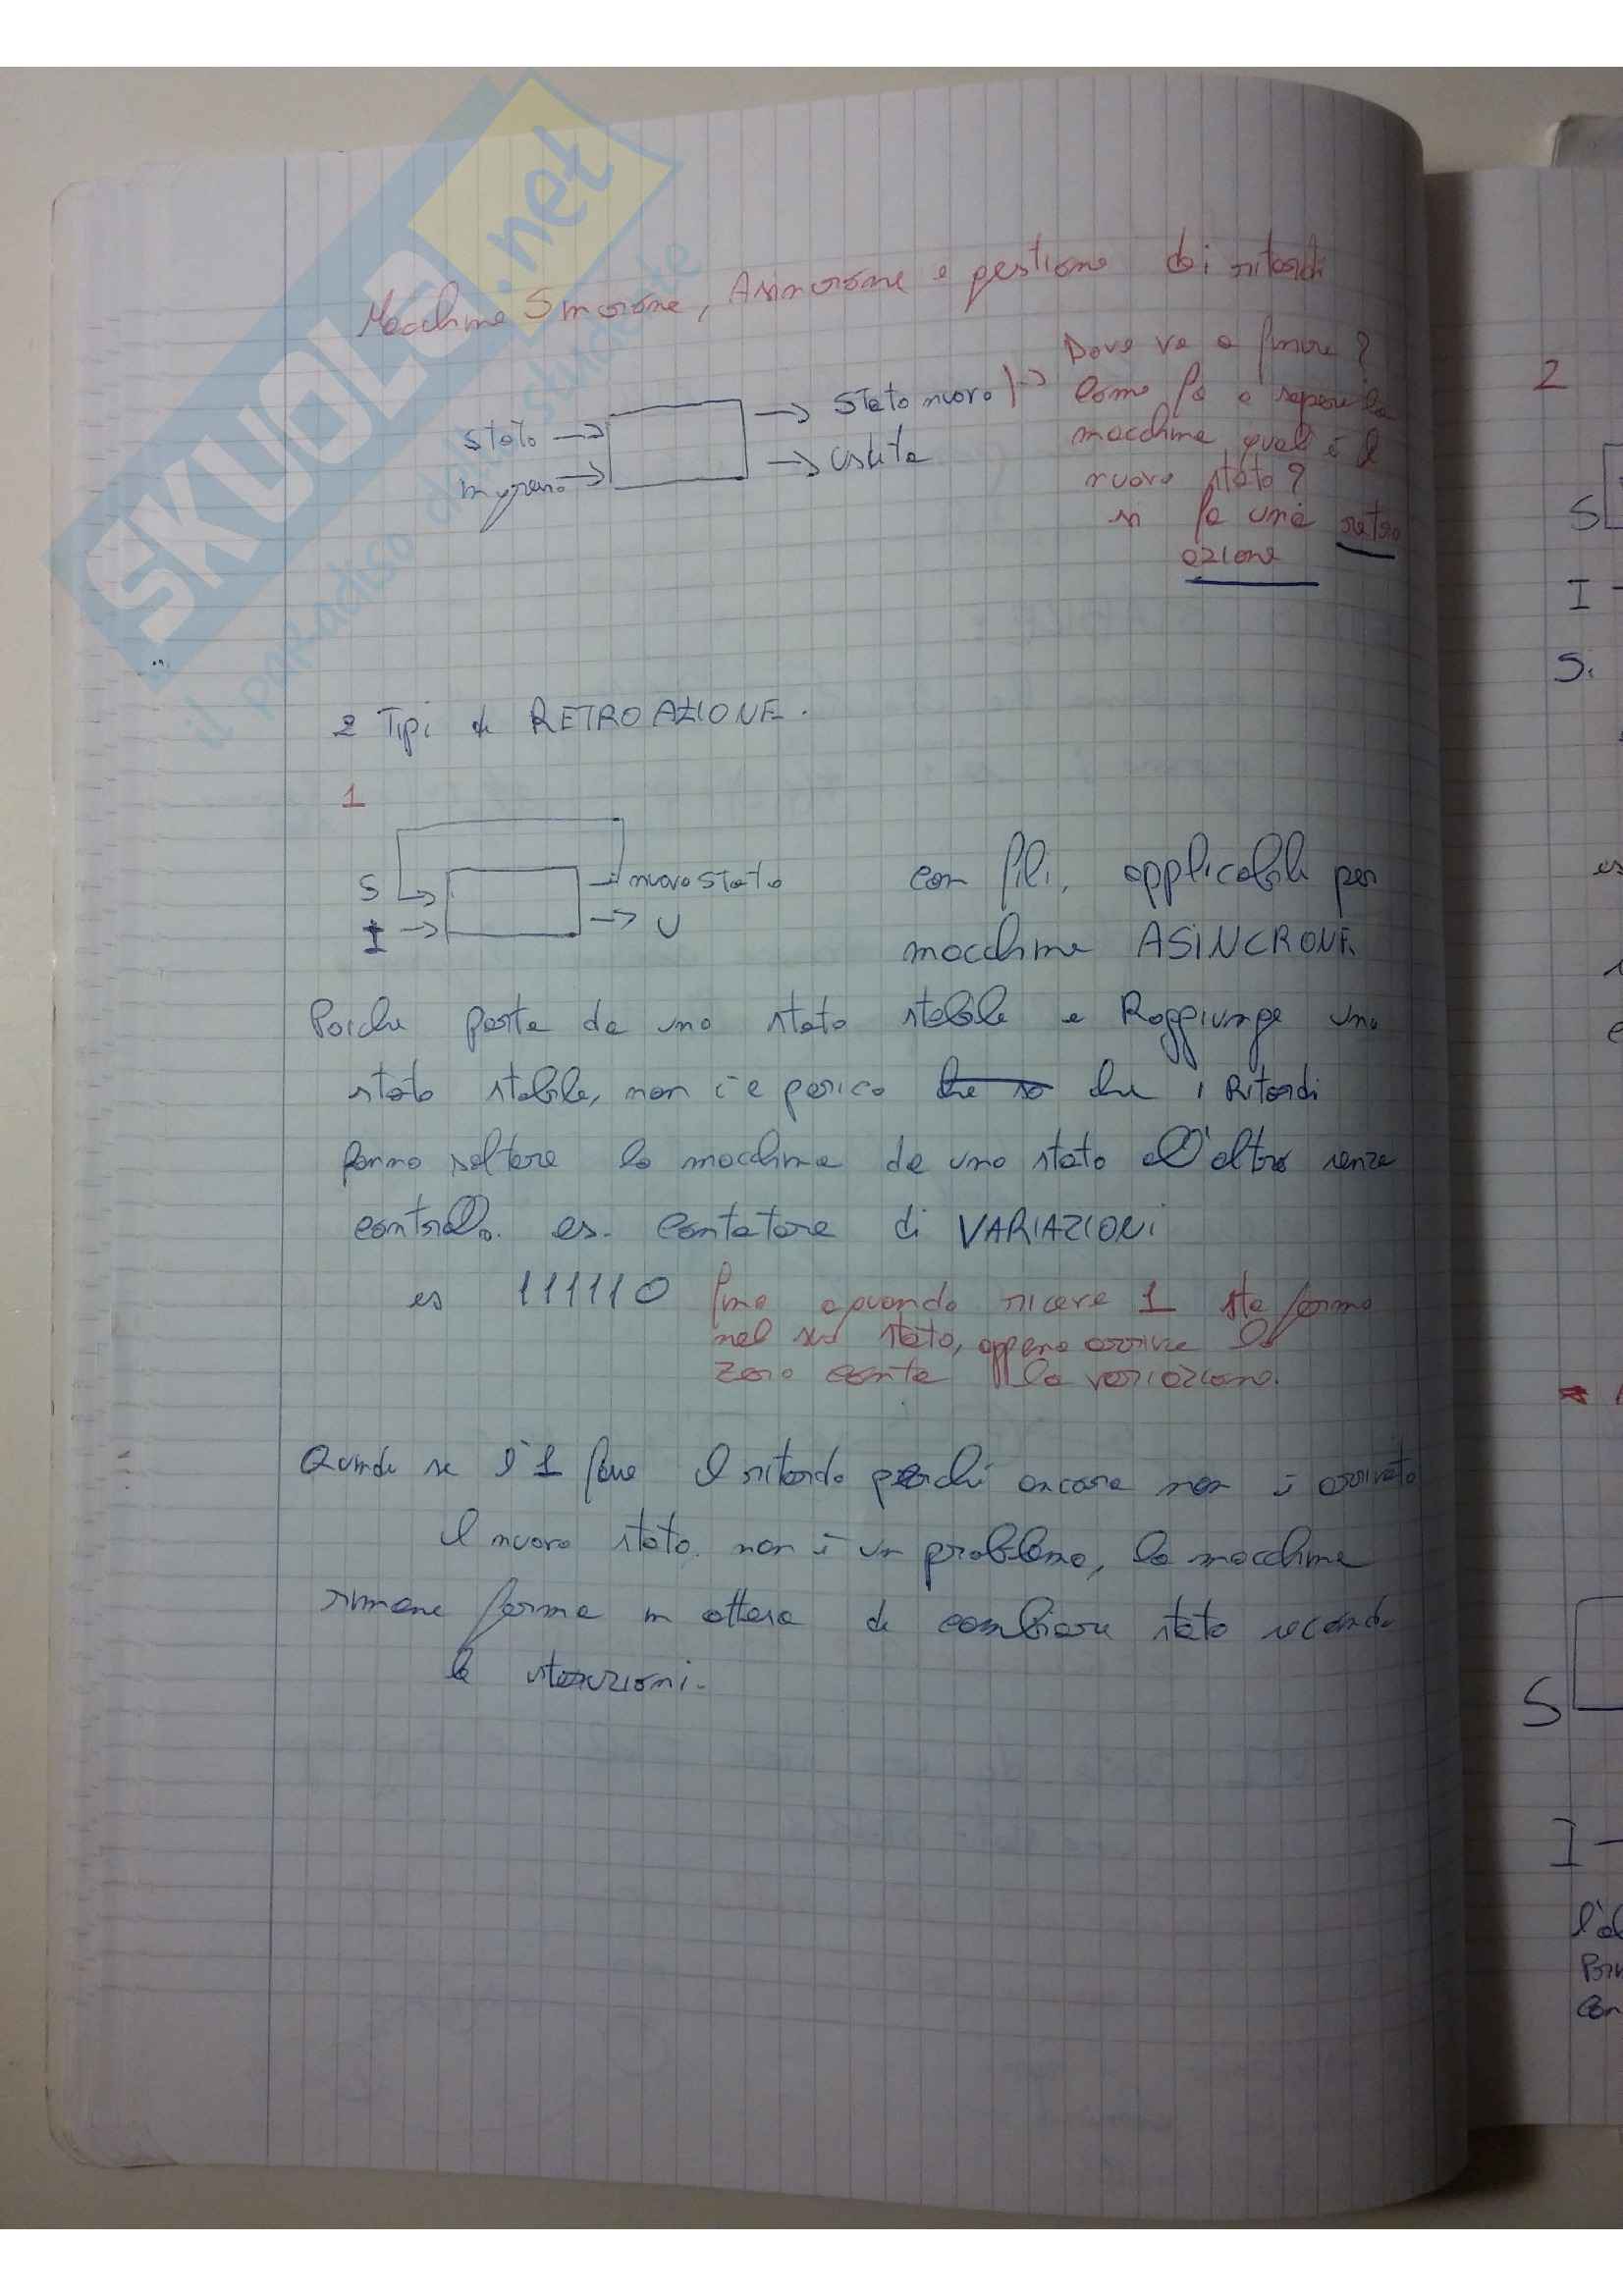 SKUOLA.net
il paradiso dello studente
Macchine Sincrone, Asincrone e gestione dei ritardi
Stato nuovo
Dove va a finire?
Come fa a sapere la
macchina qual è il
nuovo stato?
si fa una retro
azione
Stato
ingresso
Uscita
2 Tipi di RETROAZIONE.
1
S
I
nuovo stato
U
con fili, applicabile per
macchine ASINCRONE.
Poiché parte da uno stato stabile e Raggiunge uno
stato stabile, non c'è perico che i Ritardi
fanno saltare la macchina da uno stato all'altro senza
controllo. es. contatore di VARIAZIONI
es 111110
fino a quando riceve 1 sta ferma
nel suo stato, appena arriva lo
zero conta la variazione.
Quindi se l'1 il ritardo perché ancora non è arrivato
il nuovo stato. non è un problema, la macchina
rimane ferma in attesa di cambiare stato secondo
le istruzioni.
2
S
I
S
I